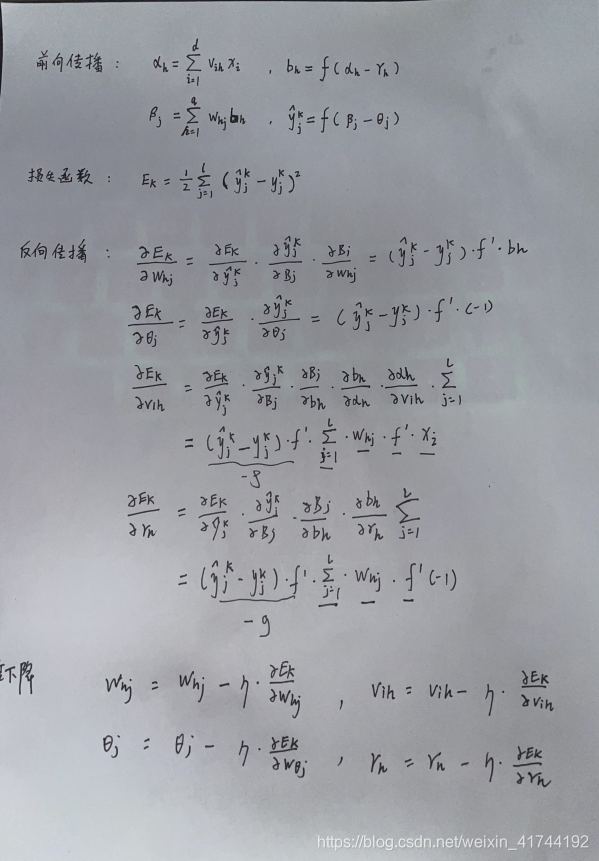 前向传播: αh = Σ_{i=1}^{d} vih xi , bh = f(αh − γh)
βj = Σ_{h=1}^{q} whj bh , ŷj^k = f(βj − θj)
损失函数: Ek = 1/2 Σ_{j=1}^{l} (ŷj^k − yj^k)²
反向传播: ∂Ek/∂whj = ∂Ek/∂ŷj^k · ∂ŷj^k/∂βj · ∂βj/∂whj = (ŷj^k − yj^k)·f'·bh
∂Ek/∂θj = ∂Ek/∂ŷj^k · ∂ŷj^k/∂θj = (ŷj^k − yj^k)·f'·(-1)
∂Ek/∂vih = ∂Ek/∂ŷj^k · ∂ŷj^k/∂βj · ∂βj/∂bh · ∂bh/∂αh · ∂αh/∂vih · Σ_{j=1}^{L}
= (ŷj^k − yj^k)·f'· Σ_{j=1}^{L} · whj · f' · xi
-g
∂Ek/∂γh = ∂Ek/∂ŷj^k · ∂ŷj^k/∂βj · ∂βj/∂bh · ∂bh/∂γh Σ_{j=1}^{L}
= (ŷj^k − yj^k)·f'· Σ_{j=1}^{L} · whj · f'(-1)
-g
下降 whj = whj − η·∂Ek/∂whj , vih = vih − η·∂Ek/∂vih
θj = θj − η·∂Ek/∂wθj , γh = γh − η·∂Ek/∂γh
https://blog.csdn.net/weixin_41744192